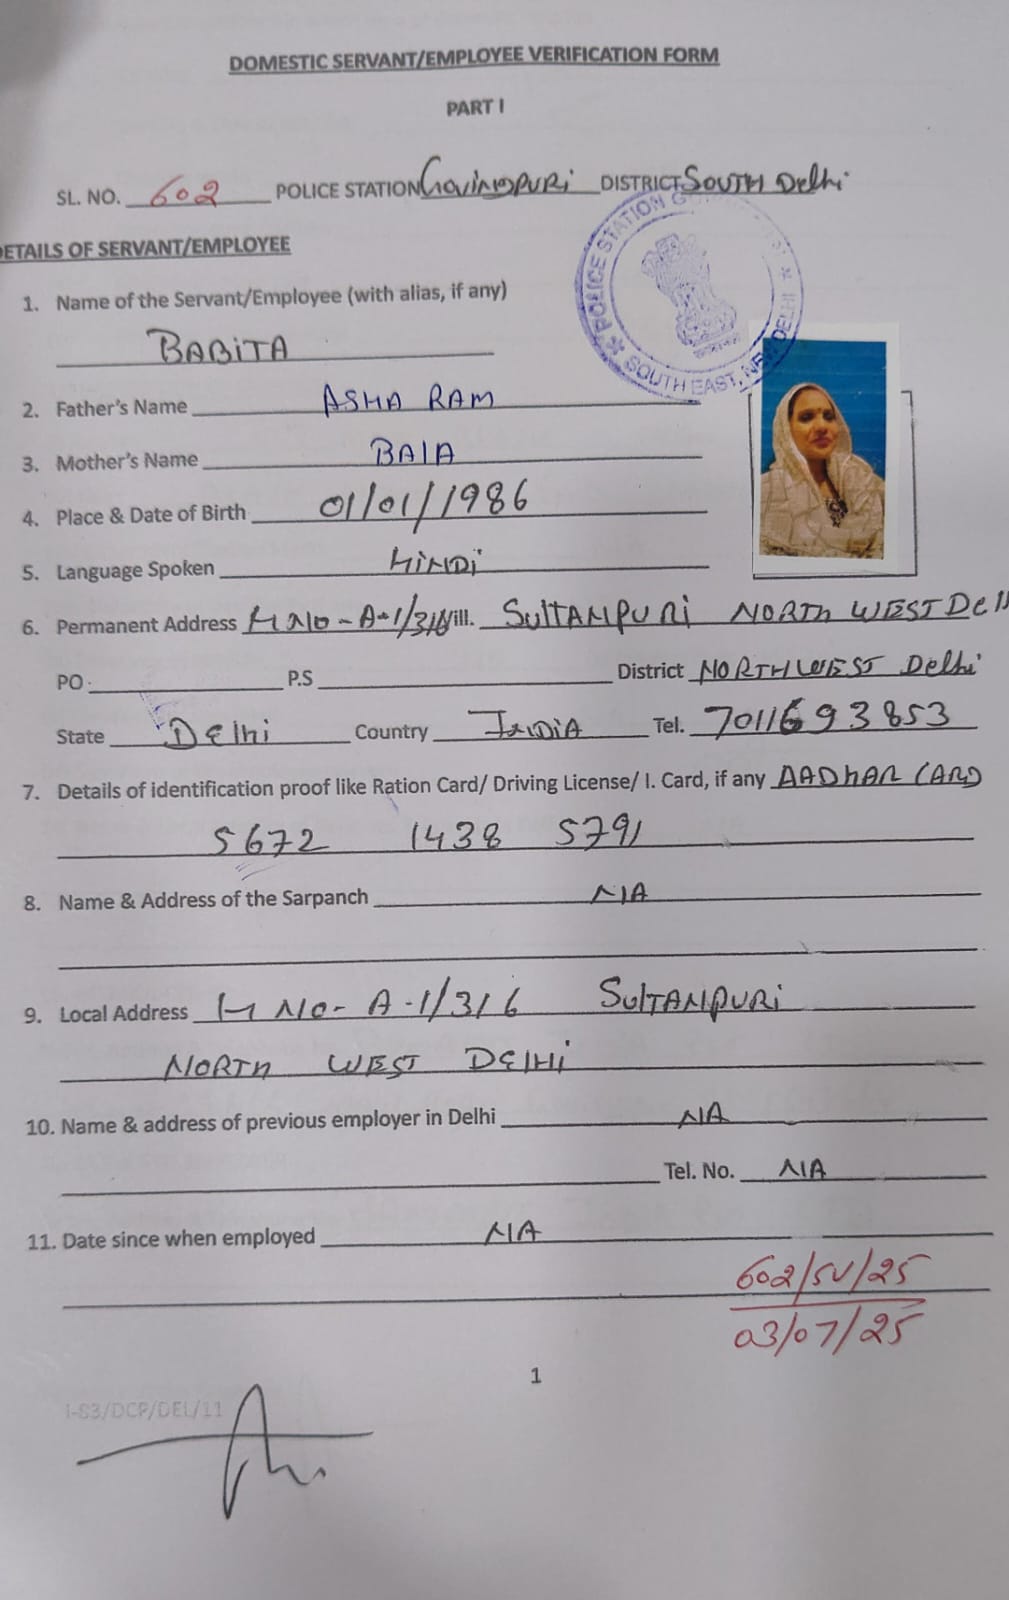 DOMESTIC SERVANT/EMPLOYEE VERIFICATION FORM
PART I
SL. NO. 602 POLICE STATION GOVINDPURI DISTRICT SOUTH Delhi
POLICE STATION
SOUTH EAST, NEW DELHI
DETAILS OF SERVANT/EMPLOYEE
1. Name of the Servant/Employee (with alias, if any)
BABITA
2. Father's Name ASHA RAM
3. Mother's Name BALA
4. Place & Date of Birth 01/01/1986
5. Language Spoken HINDI
6. Permanent Address H NO-A-1/316 Vill. SULTANPURI NORTH WEST Delh
PO P.S District NORTH WEST Delhi
State Delhi Country INDIA Tel. 7011693853
7. Details of identification proof like Ration Card/ Driving License/ I. Card, if any AADHAR CARD
5672 1438 5791
8. Name & Address of the Sarpanch NA
9. Local Address H NO-A-1/316 SULTANPURI
NORTH WEST DELHI
10. Name & address of previous employer in Delhi NA
Tel. No. NA
11. Date since when employed NA
602/SV/25
03/07/25
1
I-S3/DCP/DEL/11